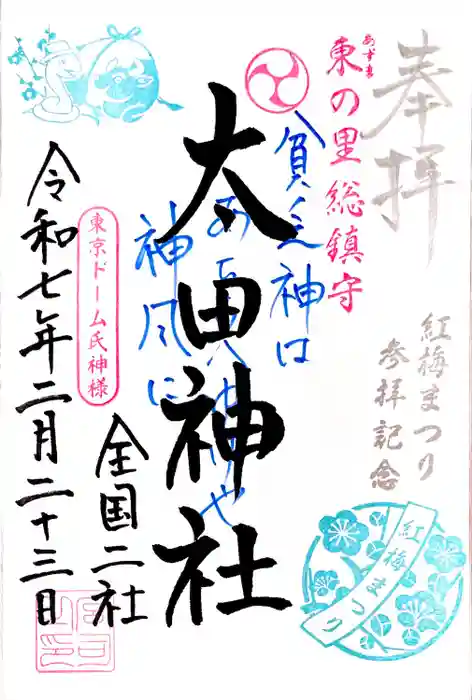 奉拝
紅梅まつり
参拝記念
東の里総鎮守
あずま
貧乏神は
神風に
太田神社
東京ドーム氏神様
全国二社
令和七年二月二十三日
紅梅まつり